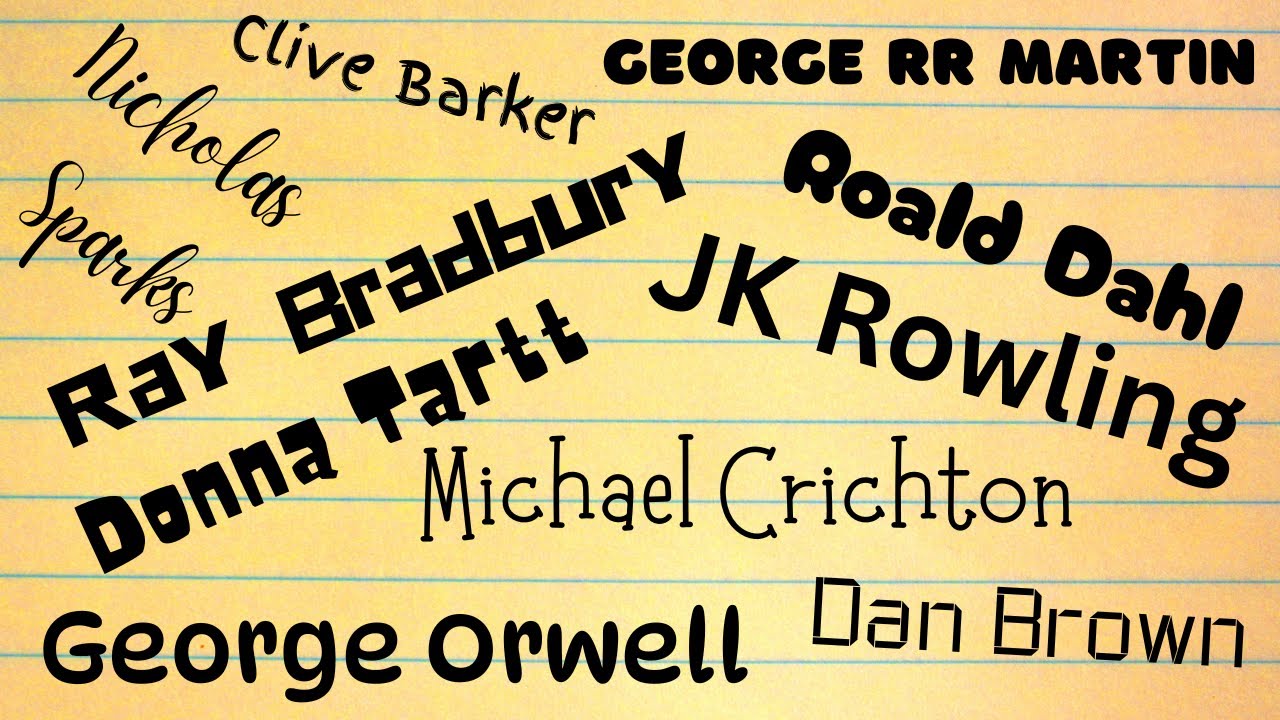 Clive Barker
GEORGE RR MARTIN
Nicholas
Sparks
Roald Dahl
Ray Bradbury
JK Rowling
Donna Tartt
Michael Crichton
George Orwell
Dan Brown